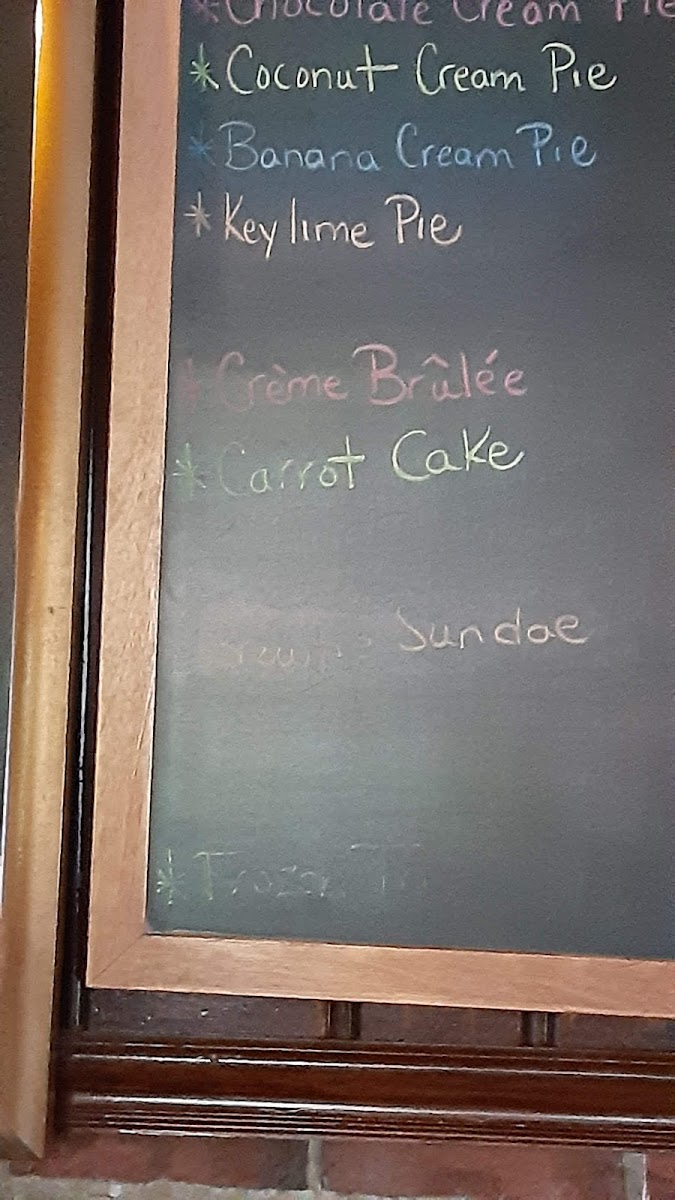 *Chocolate Cream Pie
*Coconut Cream Pie
*Banana Cream Pie
*Key lime Pie
*Crème Brûlée
*Carrot Cake
Sundae
*Frozen